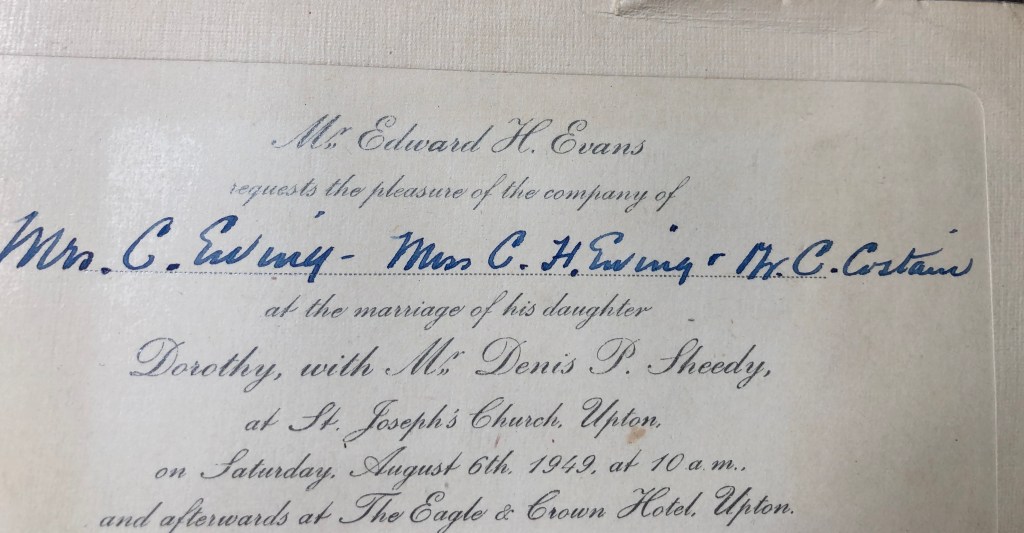 Mr. Edward H. Evans
requests the pleasure of the company of
Mrs. C. Ewing - Miss C. H. Ewing - Mr. C. Costain
at the marriage of his daughter
Dorothy, with Mr. Denis P. Sheedy,
at St. Joseph's Church, Upton,
on Saturday, August 6th, 1949, at 10 a.m.,
and afterwards at The Eagle & Crown Hotel, Upton.